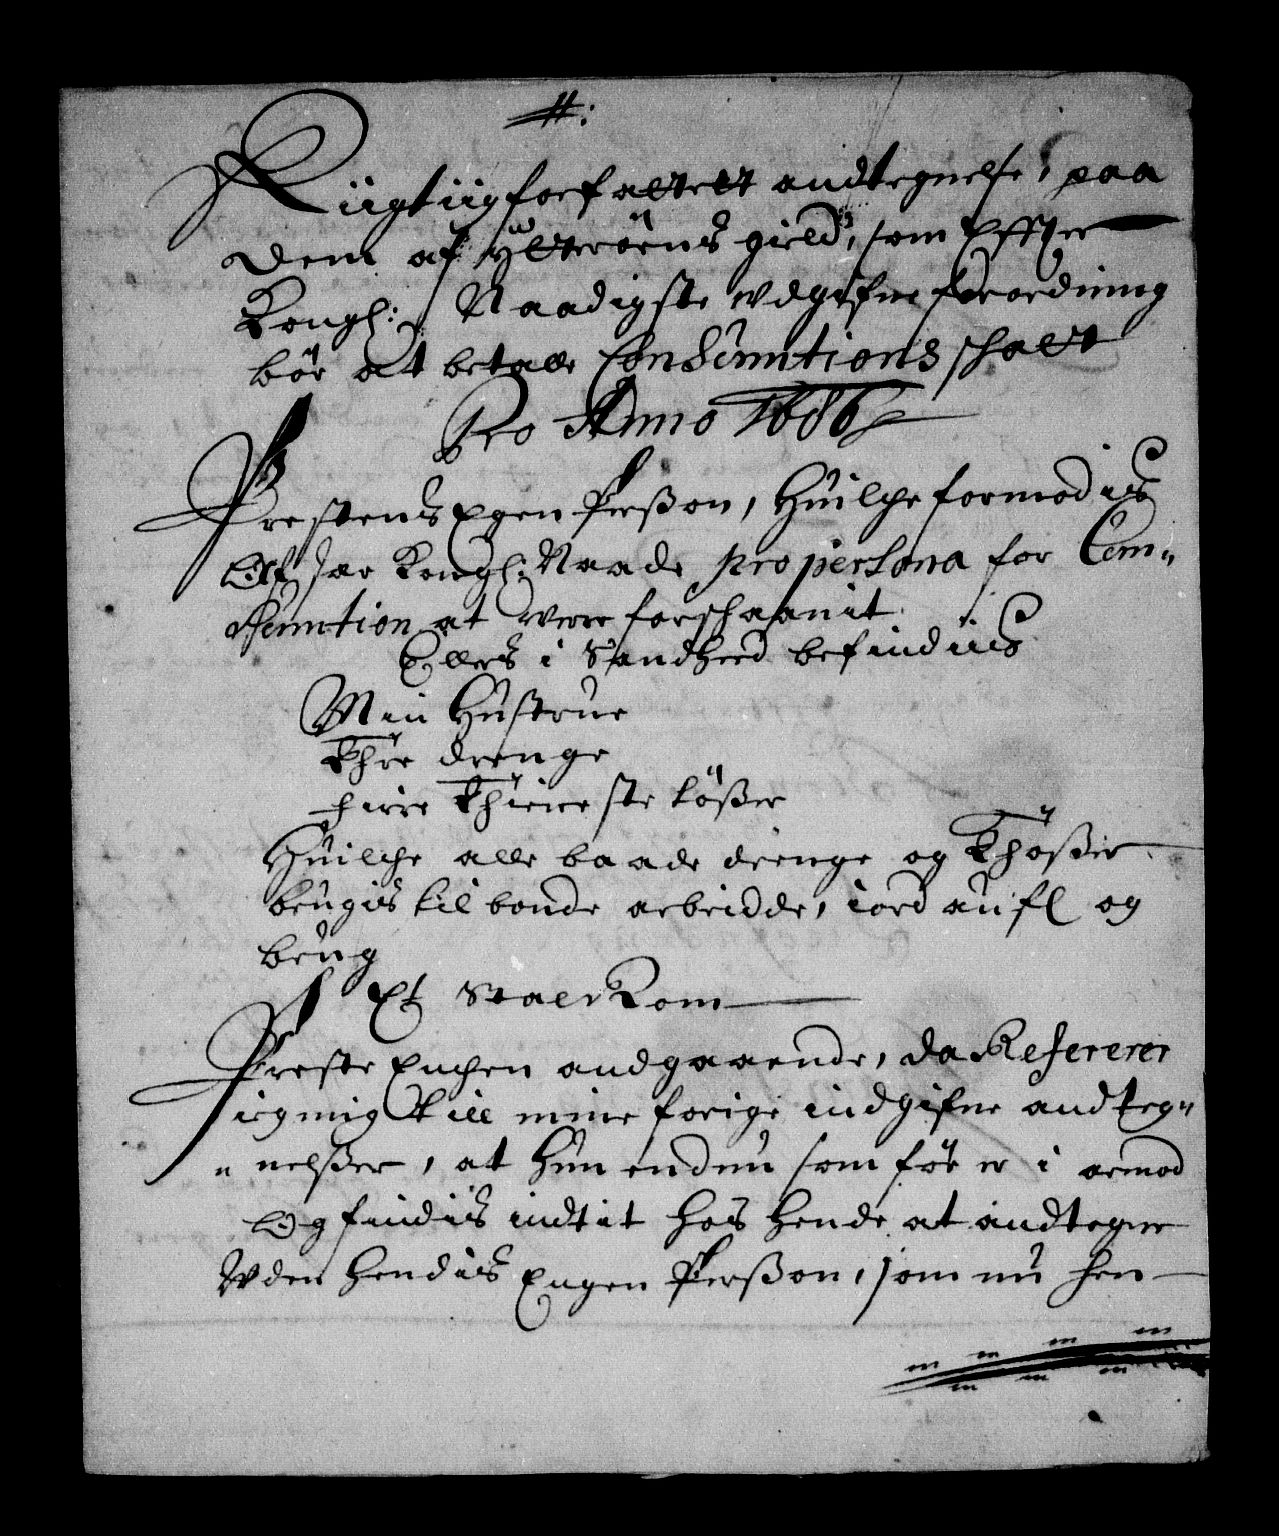 #:
Riigtiig forfattett andtegnelse, paa
dem af Ytterøens gield, som Effter
Kongl: Naadigste udgifne forordning
bør at betale Consumtions schatt
Pro Anno 1686
Prestens Egen Perßon, Huilche formodis
Aff Kongl: Naade pro persona for Con„
sumtion at vere forschaanit
Ellers i Sandhed befindiis
Min Hustrue
Thre drenge
fiire Thieneste tößer
Huilche alle baade drenge og Thößer
brugis til bonde arbeidde, iord aufl og
brug
Et Stald Rom
Preste Enchen andgaaende, da Refererer
ieg mig till mine forige indgifne andteg„
„nelßer, at hun endnu som før er i armod
Og findiis indtit hos hende at andtegne
Uden hendis Engen Perßon, som nu hen